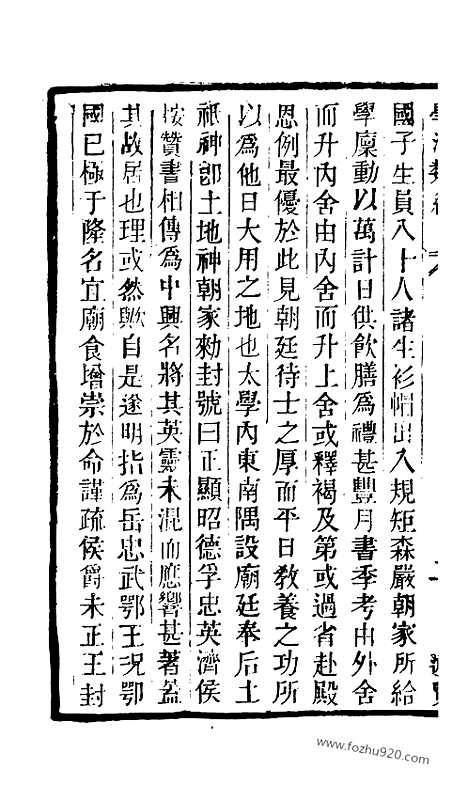 國子生員八十人諸生衫帽出入規矩森嚴朝家所給
學廩動以萬計日供飲膳爲禮甚豐月書季考由外舍
而升內舍由內舍而升上舍或釋褐及第或過省赴殿
恩例最優於此見朝廷待士之厚而平日敎養之功所
以爲他日大用之地也太學內東南隅設廟廷奉后土
祇神卽土地神朝家勑封號曰正顯昭德孚忠英濟侯
按贊書相傳爲中興名將其英靈未混而應響甚著葢
其故居也理或然歟自是遂明指爲岳忠武鄂王況鄂
國已極于隆名宜廟食增崇於命謹疏侯爵未正王封
www.fozhu920.com